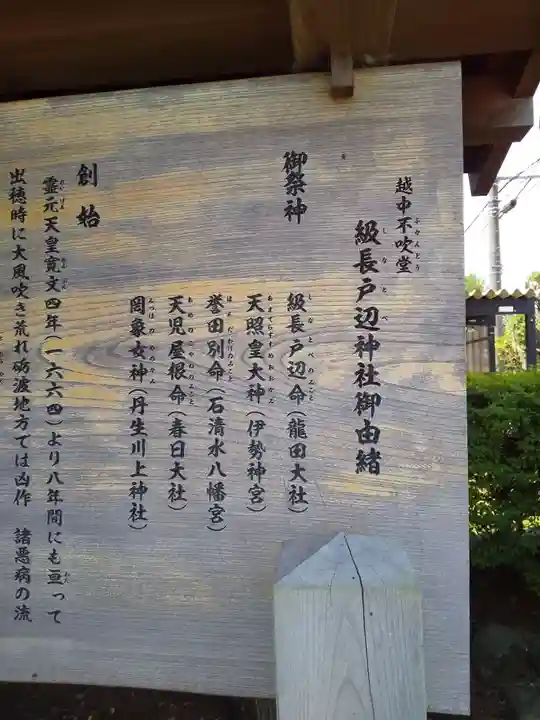 越中不吹堂
級長戸辺神社御由緒
御祭神
級長戸辺命(龍田大社)
天照皇大神(伊勢神宮)
誉田別命(石清水八幡宮)
天児屋根命(春日大社)
岡象女神(丹生川上神社)
創始
霊元天皇寛文四年(一六六四)より八年間にも亘って
出穂時に大風吹き荒れ砺波地方では凶作 諸悪病の流